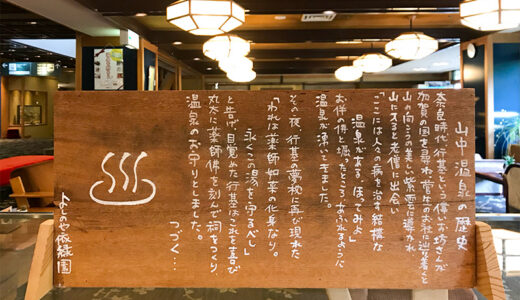 山中温泉の歴史
奈良時代、行基という偉いお坊さんが
加賀の国を尋ね、菅生のお社に辿り着くと
山の向こうの美しい紫雲に導かれ
山に入ると老僧に出会い
「ここには人々の病を治す結構な
温泉がある、ほってみよ」
お伴の僧と掘ったところ、あふれるように
温泉が湧いてきました。
その夜、行基の夢枕に再び現れた
「われは薬師如来の化身なり。
永くこの湯を守るべし」
と告げ、目覚めた行基はこれを喜び
丸太に薬師佛を刻んで祠をつくり、
温泉のお守りとしました。
つづく…
よしのや依緑園